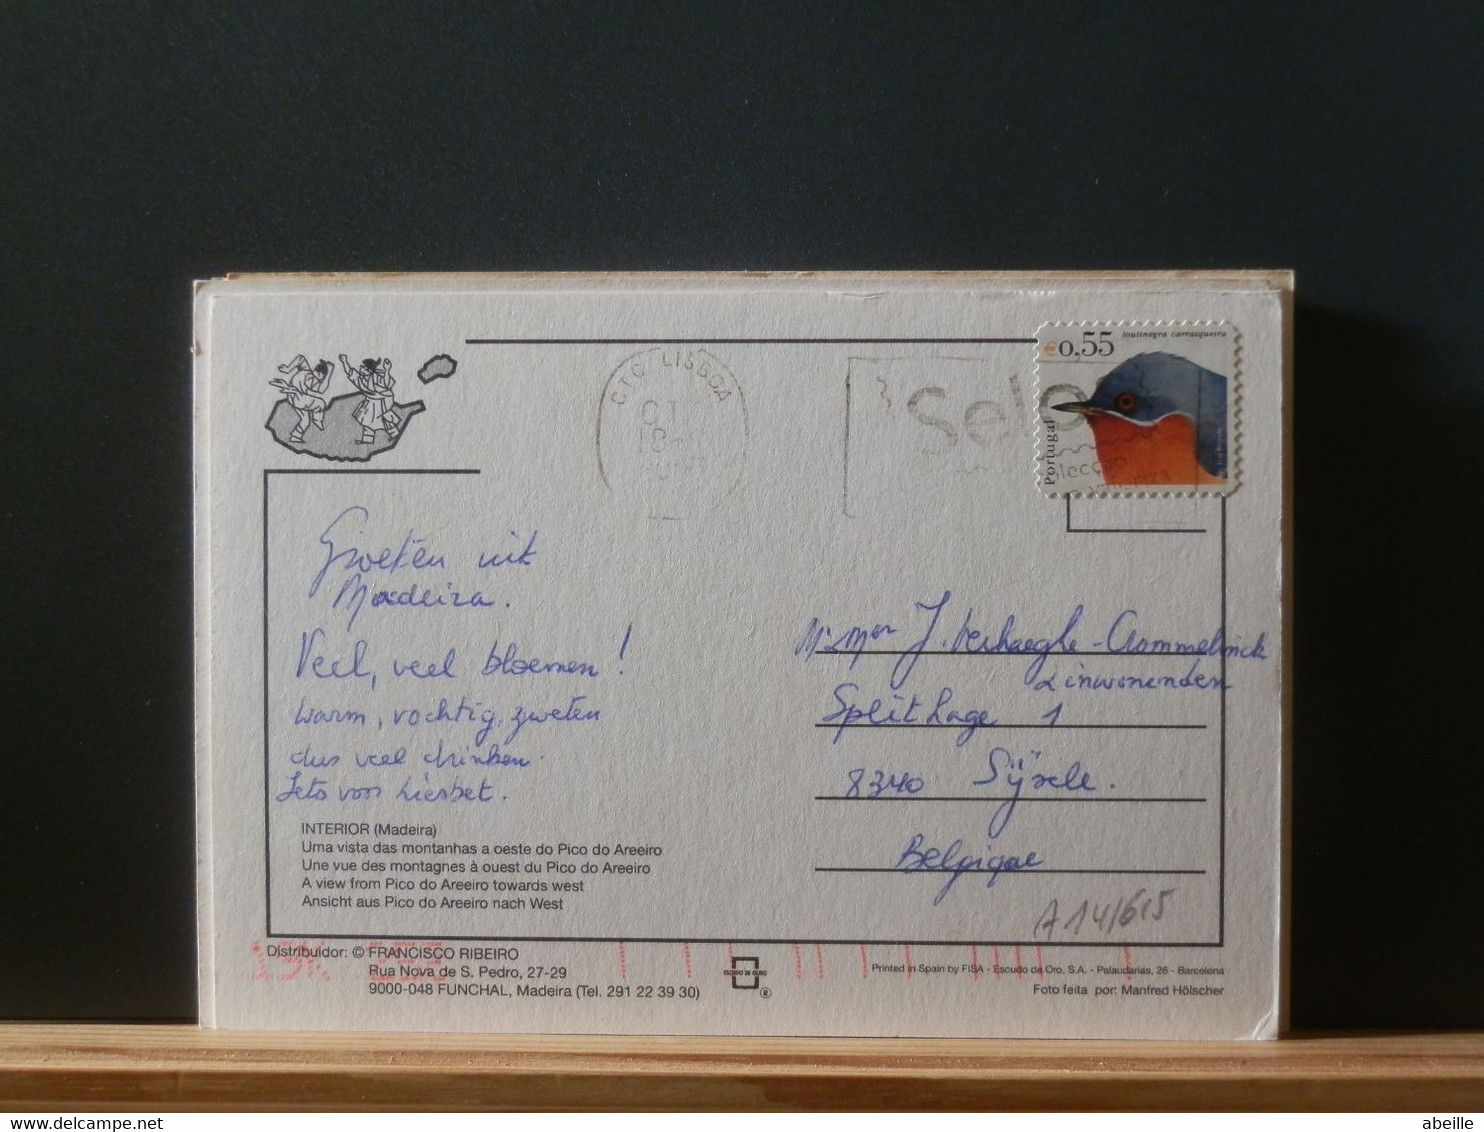 CTC LISBOA
Selo
€0,55
loutinegra carrasqueira
Portugal
lecção
Groeten uit
Madeira.
Veel, veel bloemen!
warm, vochtig, zweten
dus veel drinken.
Iets voor Liesbet.
J. Verhaeghe-Crommelinck
& inwonenden
Spleithage 1
8340 Sijsele.
Belgique
A14/615
INTERIOR (Madeira)
Uma vista das montanhas a oeste do Pico do Areeiro
Une vue des montagnes à ouest du Pico do Areeiro
A view from Pico do Areeiro towards west
Ansicht aus Pico do Areeiro nach West
Distribuidor: © FRANCISCO RIBEIRO
Rua Nova de S. Pedro, 27-29
9000-048 FUNCHAL, Madeira (Tel. 291 22 39 30)
ESCUDO DE ORO
®
Printed in Spain by FISA - Escudo de Oro, S.A. - Palaudarias, 26 - Barcelona
Foto feita por: Manfred Hölscher
abeille